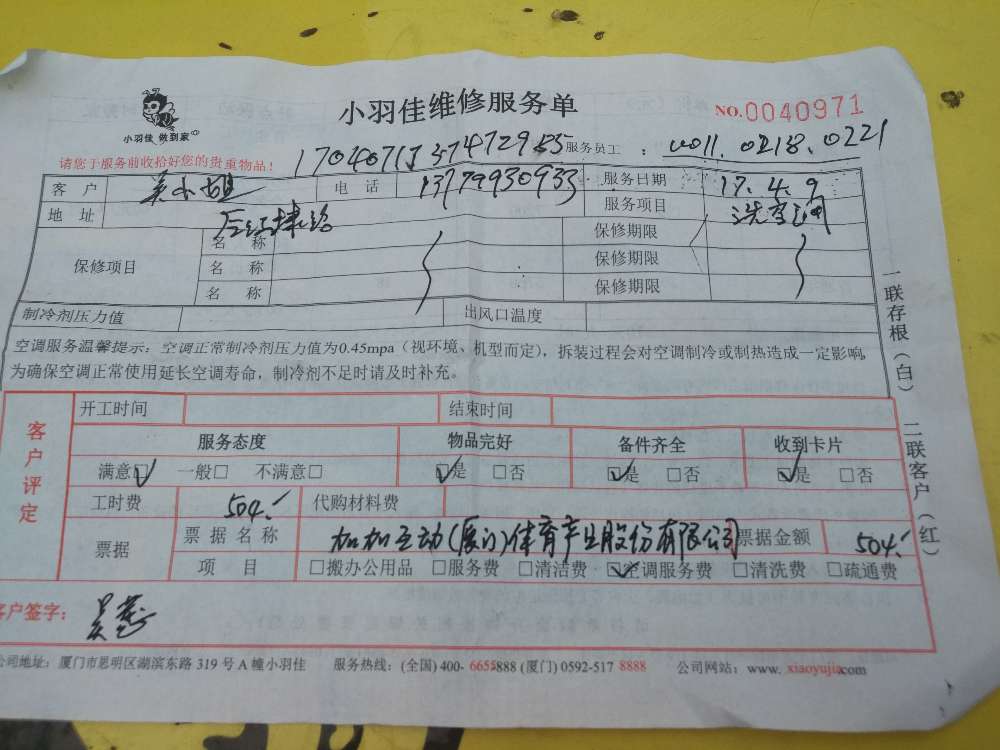 小羽佳维修服务单
NO.0040971
小羽佳 做到家
请您于服务前收拾好您的贵重物品！
服务员工：0011.0218.0221
客 户 吴小姐 电 话 13779930933 服务日期 17.4.9
地 址 服务项目 洗空调
保修项目 名 称 保修期限
名 称 保修期限
名 称 保修期限
制冷剂压力值 出风口温度
空调服务温馨提示：空调正常制冷剂压力值为0.45mpa（视环境、机型而定），拆装过程会对空调制冷或制热造成一定影响，
为确保空调正常使用延长空调寿命，制冷剂不足时请及时补充。
客户评定
开工时间 结束时间
服务态度 物品完好 备件齐全 收到卡片
满意☑ 一般□ 不满意□ ☑是 □否 ☑是 □否 ☑是 □否
工时费 504.- 代购材料费
票据 票据名称 加加互动(厦门)体育产业股份有限公司 票据金额 504.-
项 目 □搬办公用品 □服务费 □清洁费 ☑空调服务费 □清洗费 □疏通费
客户签字：
公司地址：厦门市思明区湖滨东路 319 号 A 幢小羽佳 服务热线：(全国) 400- 6655888 (厦门) 0592-517 8888 公司网站：www. xiaoyujia.com
一联存根（白） 二联客户（红）